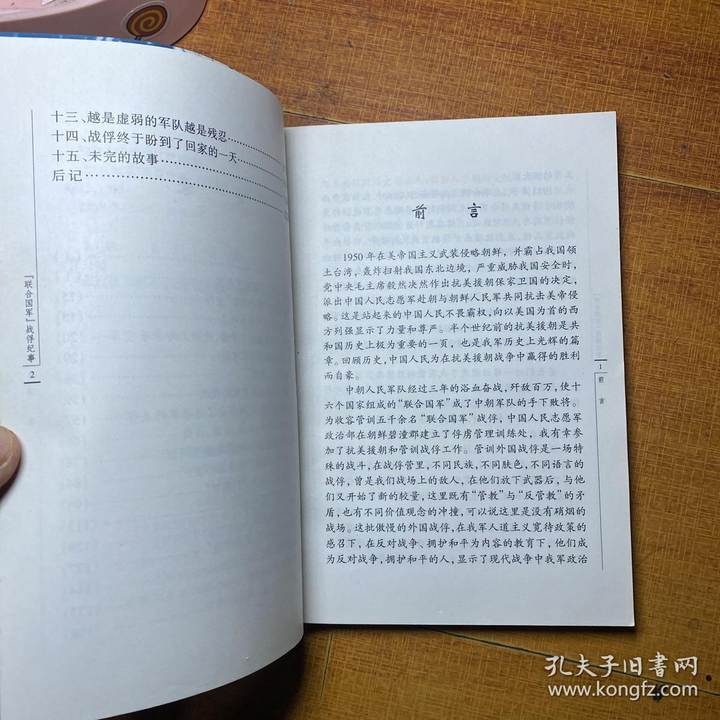 十三、越是虚弱的军队越是残忍
十四、战俘终于盼到了回家的一天
十五、未完的故事
后记
『联合国军』战俘纪事
2
前言
1950年在美帝国主义武装侵略朝鲜，并霸占我国领
土台湾、轰炸扫射我国东北边境，严重威胁我国安全时，
党中央毛主席毅然决然作出抗美援朝保家卫国的决定，
派出中国人民志愿军赴朝与朝鲜人民军共同抗击美帝侵
略。这是站起来的中国人民不畏霸权，向以美国为首的西
方列强显示了力量和尊严。半个世纪前的抗美援朝是共
和国历史上极为重要的一页，也是我军历史上光辉的篇
章。回顾历史，中国人民为在抗美援朝战争中赢得的胜利
而自豪。
中朝人民军队经过三年的浴血奋战，歼敌百万，使十
六个国家组成的“联合国军”成了中朝军队的手下败将。
为收容管训五千余名“联合国军”战俘，中国人民志愿军
政治部在朝鲜碧潼郡建立了俘虏管理训练处，我有幸参
加了抗美援朝和管训战俘工作。管训外国战俘是一场特
殊的战斗，在战俘营里，不同民族，不同肤色，不同语言的
战俘，曾是我们战场上的敌人，在他们放下武器后，与他
们又开始了新的较量，这里既有“管教”与“反管教”的矛
盾，也有不同价值观念的冲撞，可以说这里是没有硝烟的
战场。这批傲慢的外国战俘，在我军人道主义宽待政策的
感召下，在反对战争、拥护和平为内容的教育下，他们成
为反对战争，拥护和平的人，显示了现代战争中我军政治
1
前言
孔夫子旧书网
www.kongfz.com